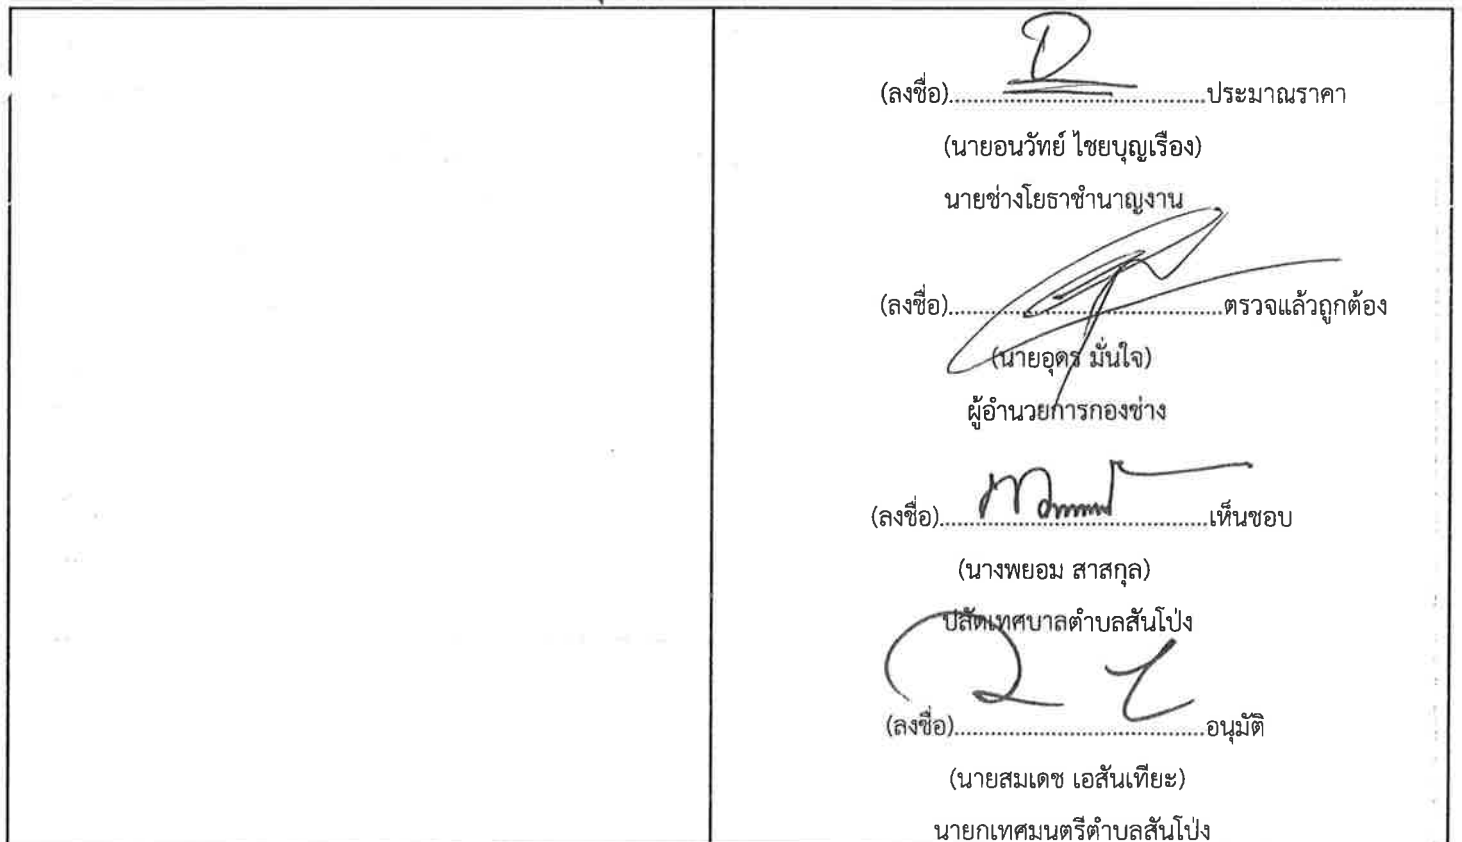 (ลงชื่อ)..............................ประมาณราคา
(นายอนวัทย์ ไชยบุญเรือง)
นายช่างโยธาชำนาญงาน
(ลงชื่อ)..............................ตรวจแล้วถูกต้อง
(นายอุดร มั่นใจ)
ผู้อำนวยการกองช่าง
(ลงชื่อ)..............................เห็นชอบ
(นางพยอม สาสกุล)
ปลัดเทศบาลตำบลสันโป่ง
(ลงชื่อ)..............................อนุมัติ
(นายสมเดช เอสันเทียะ)
นายกเทศมนตรีตำบลสันโป่ง